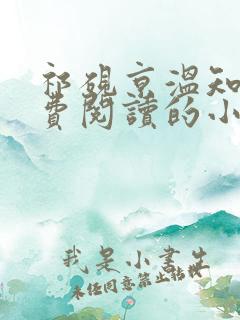 祁砚京温知
費閱讀的小
我是小書生
未经同意禁止转载